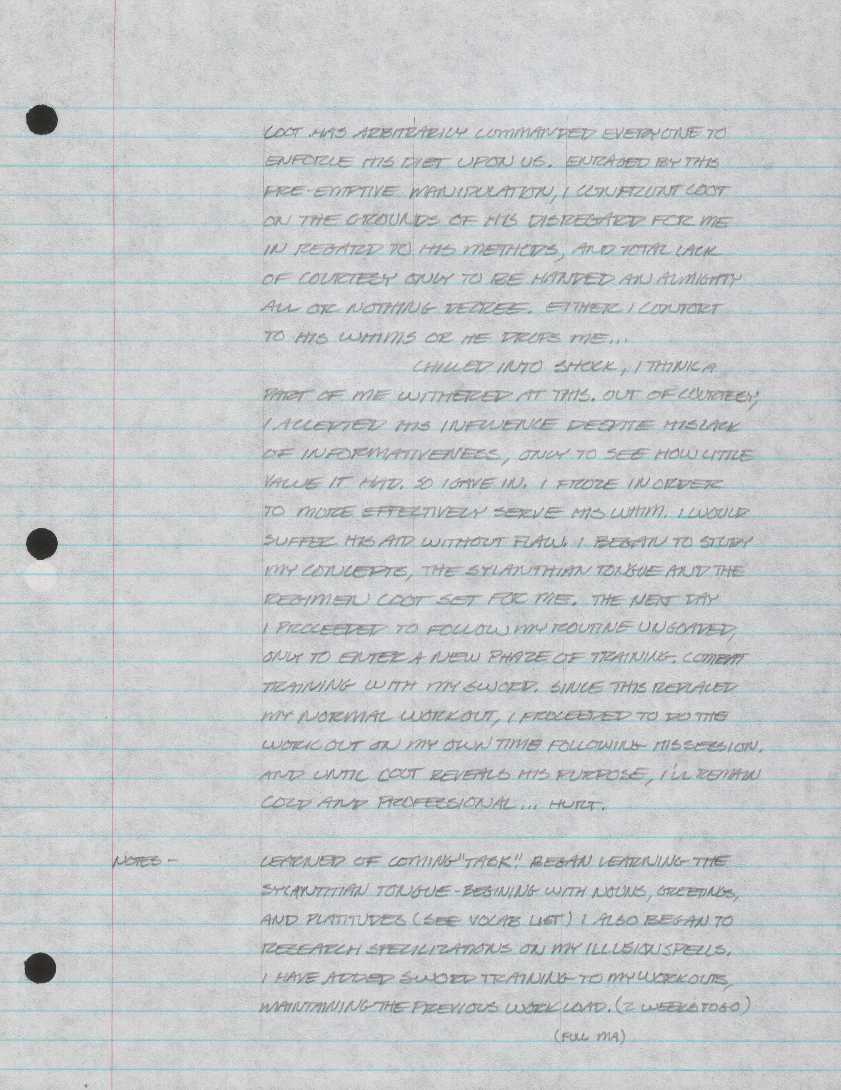 COOT HAS ARBITRARILY COMMANDED EVERYONE TO
ENFORCE HIS DIET UPON US. ENRAGED BY THIS
PRE-EMPTIVE MANIPULATION, I CONFRONT COOT
ON THE GROUNDS OF HIS DISREGARD FOR ME
IN REGARD TO HIS METHODS, AND TOTAL LACK
OF COURTESY ONLY TO BE HANDED AN ALMIGHTY
ALL OR NOTHING DECREE. EITHER I CONTORT
TO HIS WHIMS OR HE DROPS ME...
CHILLED INTO SHOCK, I THINK A
PART OF ME WITHERED AT THIS. OUT OF COURTESY,
I ACCEPTED HIS INFLUENCE DESPITE HIS LACK
OF INFORMATIVENESS, ONLY TO SEE HOW LITTLE
VALUE IT HAD. SO I GAVE IN. I FROZE IN ORDER
TO MORE EFFECTIVELY SERVE HIS WHIM. I WOULD
SUFFER HIS AID WITHOUT FLAW. I BEGAN TO STUDY
MY CONCEPTS, THE SYLANTHIAN TONGUE AND THE
REGIMEN COOT SET FOR ME. THE NEXT DAY
I PROCEEDED TO FOLLOW MY ROUTINE UNGOADED,
ONLY TO ENTER A NEW PHAZE OF TRAINING. COMBAT
TRAINING WITH MY SWORD. SINCE THIS REPLACED
MY NORMAL WORKOUT, I PROCEEDED TO DO THE
WORKOUT ON MY OWN TIME FOLLOWING HIS SESSION.
AND UNTIL COOT REVEALS HIS PURPOSE, I'LL REMAIN
COLD AND PROFESSIONAL... HURT.
NOTES - LEARNED OF COMING "TASK". BEGAN LEARNING THE
SYLANTHIAN TONGUE - BEGINING WITH NOUNS, GREETINGS,
AND PLATITUDES (SEE VOCAB LIST) I ALSO BEGAN TO
RESEARCH SPECILIZATIONS ON MY ILLUSION SPELLS.
I HAVE ADDED SWORD TRAINING TO MY WORKOUTS,
MAINTAINING THE PREVIOUS WORK LOAD. (2 WEEKS TO GO)
(FULL MA)